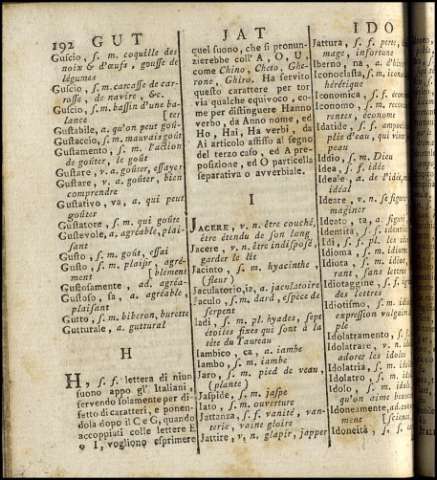 192 GUT JAT IDO
Guscio, s. m. coquille des
noix & d'œufs, gousse de
légumes
Guscio, s. m. carcasse de car-
rosse, de navire, &c.
Guscio, s. m. bassin d'une ba-
lance [ter
Gustabile, a. qu'on peut goû-
Gustaccio, s. m. mauvais goût
Gustamento, s. m. l'action
de goûter, le goût
Gustare, v. a. goûter, essayer
Gustare, v. a. goûter, bien
comprendre
Gustativo, va, a. qui peut
goûter
Gustatore, s. m. qui goûte
Gustevole, a. agréable, plai-
sant
Gusto, s. m. goût, essai
Gusto, s. m. plaisir, agré-
ment [blement
Gustosamente, ad. agréa-
Gustoso, sa, a. agréable,
plaisant
Gutto, s. m. biberon, burette
Gutturale, a. guttural
H
H, s. f. lettera di niun
suono appo gl' Italiani,
servendo solamente per di-
fetto di caratteri, e ponen-
dola dopo il C e G, quando
accoppiati colle lettere E
o I, vogliono esprimere
quel suono, che si pronun-
zierebbe coll' A, O, U,
come Chino, Cheto, Ghe-
rone, Ghiro. Ha servito
questo carattere per tor
via qualche equivoco, co-
me per distinguere Hanno
verbo, da Anno nome, ed
Ho, Hai, Ha verbi, da
Ai articolo affisso al segno
del terzo caso, ed A pre-
posizione, ed O particella
separativa o avverbiale.
I
JACERE, v. n. être couché,
être étendu de son long
Jacere, v. n. être indisposé,
garder le lit
Jacinto, s. m. hyacinthe,
(fleur)
Jaculatorio, ia, a. jaculatoire
Jaculo, s. m. dard, espèce de
serpent
Iadi, s. f. pl. hyades, sept
étoiles fixes qui sont à la
tête du Taureau
Iambico, ca, a. iambe
Iambo, s. m. iambe
Jaro, s. m. pied de veau,
(plante)
Jaspide, s. m. jaspe
Iato, s. m. ouverture
Jattanza, s. f. vanité, van-
terie, vaine gloire
Jattire, v. n. glapir, japper
Jattura, s. f. perte,
mage, infortune
Iberno, na, a. d'hiver
Iconoclasta, s. m.
hérétique
Iconomica, s. f.
Iconomo, s. m.
rentes, économe
Idatide, s. f.
ple d'eau, qui vient
peau
Iddio, s. m. Dieu
Idea, s. f. idée
Ideale, a. de l'idée,
idéal
Ideare, v. n. se figurer
maginer
Ideato, ta, a.
Identità, s. f.
Idi, s. f. pl. les
Idioma, s. m.
Idiota, s. m.
rant, sans lettres
Idiotaggine, s. f.
des lettres
Idiotismo, s. m.
expression vulgaire
ple
Idolatramento, s.
Idolatrare, v. n.
adorer les idoles
Idolatria, s. f.
Idolatro, s. m.
Idolo, s. m. idole,
qu'on aime
Idoneamente, ad.
ment
Idoneità, s. f.